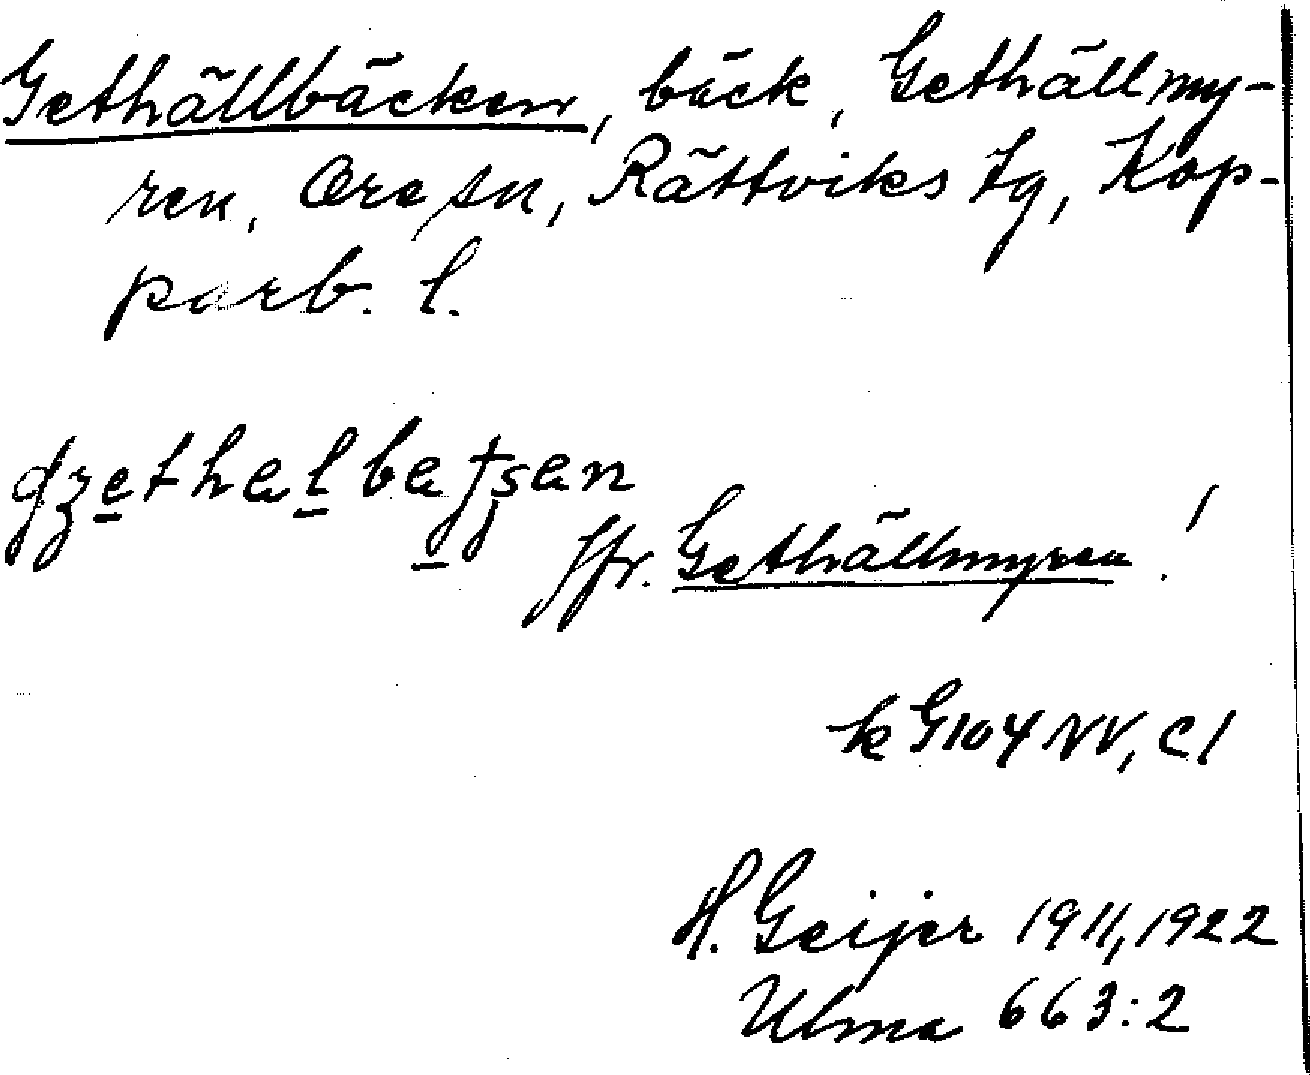 Gethällbäcken, bäck, Gethällmy-
ren, Ore sn, Rättviks tg, Kop-
parb. l.
Jfr. Gethällmyren!
k G104 NV, C1
H. Geijer 1911, 1922
Ulma 663:2